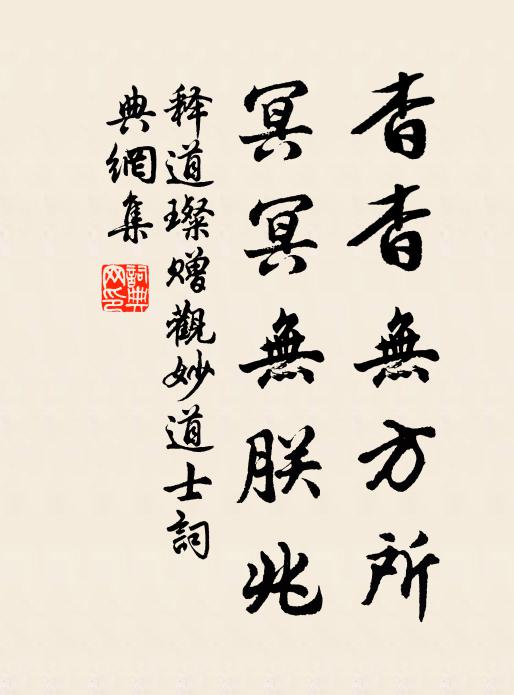 杳杳無方所
冥冥無朕兆
释道璨赠觀妙道士詞
典網集
詞典网印